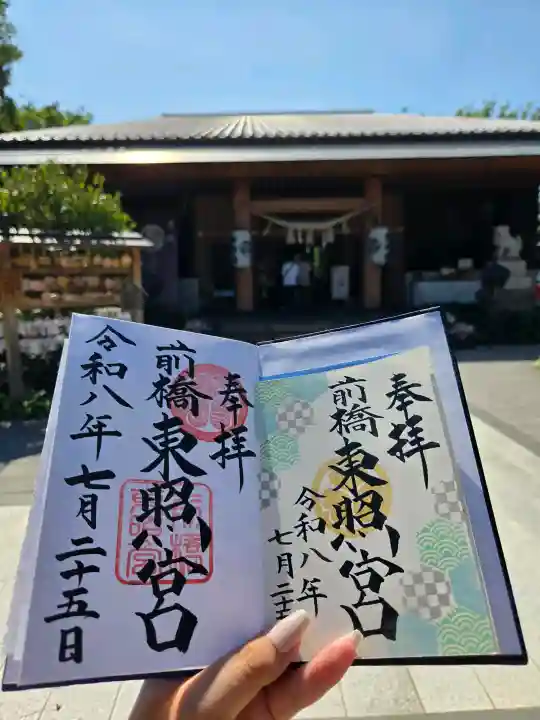 奉拝
前橋東照宮
令和八年七月二十五日
奉拝
前橋東照宮
令和八年
七月二十五